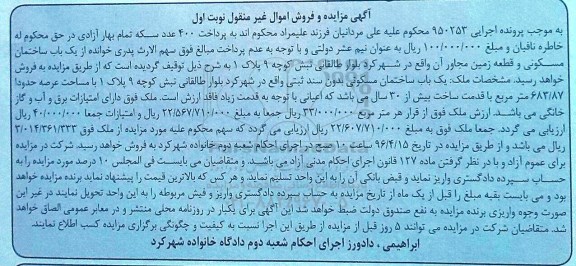 آگهی مزایده و فروش اموال غیر منقول نوبت اول
به موجب پرونده اجرایی ۹۵۰۲۵۳ محکوم علیه علی مردانیان فرزند علیمراد محکوم اند به پرداخت ۴۰۰ عدد سکه تمام بهار آزادی در حق محکوم له
خاطره نافیان و مبلغ ۱۰۰/۰۰۰/۰۰۰ ریال به عنوان نیم عشر دولتی و با توجه به عدم پرداخت مبالغ فوق سهم الارث پدری خوانده از یک باب ساختمان
مسکونی و قطعه زمین مجاور آن واقع در شهرکرد بلوار طالقانی نبش کوچه ۹ پلاک ۱ به شرح ذیل توقیف گردیده است که از طریق مزایده به فروش
خواهد رسید. مشخصات ملک: یک باب ساختمان مسکونی بدون سند ثبتی واقع در شهرکرد بلوار طالقانی نبش کوچه ۹ پلاک ۱ با مساحت عرصه حدودا
۶۸۳/۸۷ متر مربع با قدمت ساخت بیش از ۳۰ سال می باشد که اعیانی با توجه به قدمت زیاد فاقد ارزش است. ملک فوق دارای امتیازات برق و آب و گاز
خانگی می باشند. ارزش ملک فوق از قرار هر متر مربع ۳۳/۰۰۰/۰۰۰ ریال جمعا به مبلغ ۲۲/۵۶۷/۷۱۰/۰۰۰ ریال و امتیازات جمعا ۴۰/۰۰۰/۰۰۰ ریال
ارزیابی می گردد. جمعا ملک فوق به مبلغ ۲۲/۶۰۷/۷۱۰/۰۰۰ ریال ارزیابی می گردد که سهم محکوم علیه مورد مزایده از ملک فوق ۳/۰۱۴/۳۶۱/۳۳۳
ریال می باشد و از طریق مزایده در تاریخ ۹۶/۴/۱۵ ساعت ۱۰ صبح در اجرای احکام شعبه دوم خانواده شهرکرد به فروش خواهد رسید. شرکت در مزایده
برای عموم آزاد و با در نظر گرفتن ماده ۱۲۷ قانون اجرای احکام مدنی آزاد می باشند، و متقاضیان می بایست فی المجلس ۱۰ درصد مورد مزایده را به
حساب سپرده دادگستری واریز نماید و قبض بانکی آن را به این واحد تسلیم نماید، و هر کس که بالاترین قیمت را پیشنهاد نماید برنده مزایده خواهد
بود و می بایست بقیه مبلغ را قبل از یک ماه از تاریخ مزایده به حساب سپرده دادگستری واریز و فیش مربوطه را به این واحد تحویل نمایند در غیر این
صورت وجوه واریزی برنده مزایده به نفع صندوق دولت ضبط خواهد شد این آگهی برای یکبار در روزنامه محلی منتشر و در معابر عمومی الصاق خواهد
شد. متقاضیان شرکت در مزایده می توانند ۵ روز قبل از مزایده از طریق این اجرا نسبت به کیفیت و چگونگی برگزاری مزایده کسب اطلاع نمایند.
ابراهیمی ، دادورز اجرای احکام شعبه دوم دادگاه خانواده شهرکرد